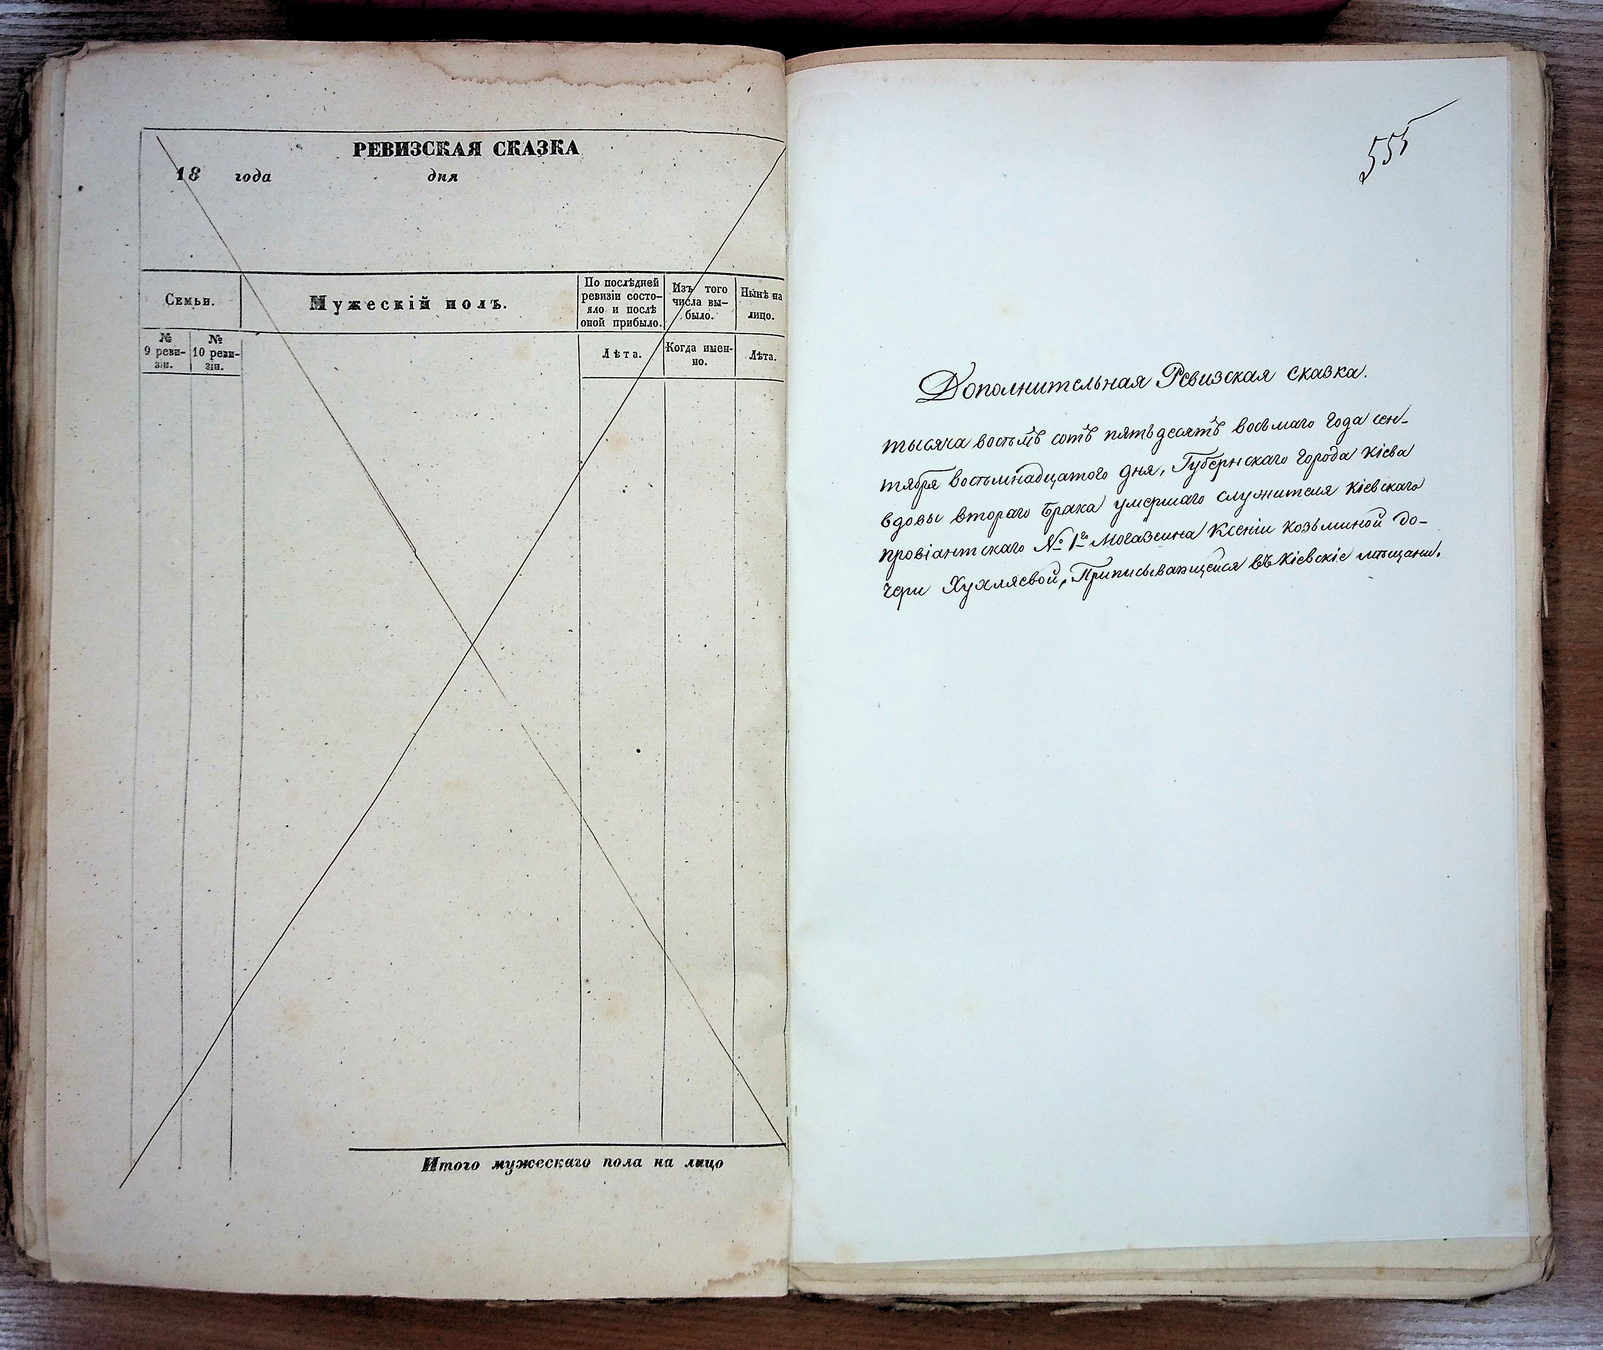 РЕВИЗСКАЯ СКАЗКА
18 года дня
Семьи.
Мужескій полъ.
По послѣдней
ревизіи состо-
яло и послѣ
оной прибыло.
Изъ того
числа вы-
было.
Нынѣ на
лицо.
№
9 реви-
зіи.
№
10 реви-
зіи.
Лѣта.
Когда имен-
но.
Лѣта.
Итого мужескаго пола на лицо
555
Дополнительная Ревизская сказка.
тысяча восемь сотъ пятьдесятъ восьмаго года сен-
тября восемнадцатого дня, Губернскаго города Кіева
вдовы втораго брака умершаго служителя Кіевскаго
провіантскаго № 1го Могазеина Ксеніи Козьминой до-
чери Хухляевой, Приписывающейся въ Кіевскіе мѣщани.